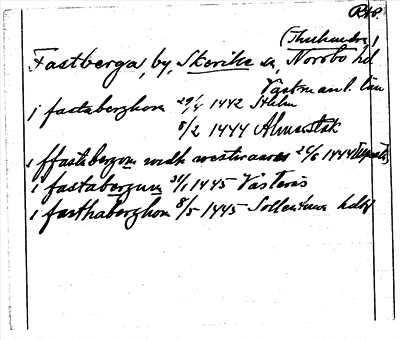 RAP.
(Thuhundra)
Fastberga, by, Skerike sn, Norrbo hd
Västmanl. län
j fastaberghom 29/4 1442 Sthlm
8/2 1444 Almastäk
i ffastabergom widh westraaros 26/6 1444
i fastabergum 31/1 1445 Västerås
i fasthaberghom 8/5 1445 Sollentuna hdg